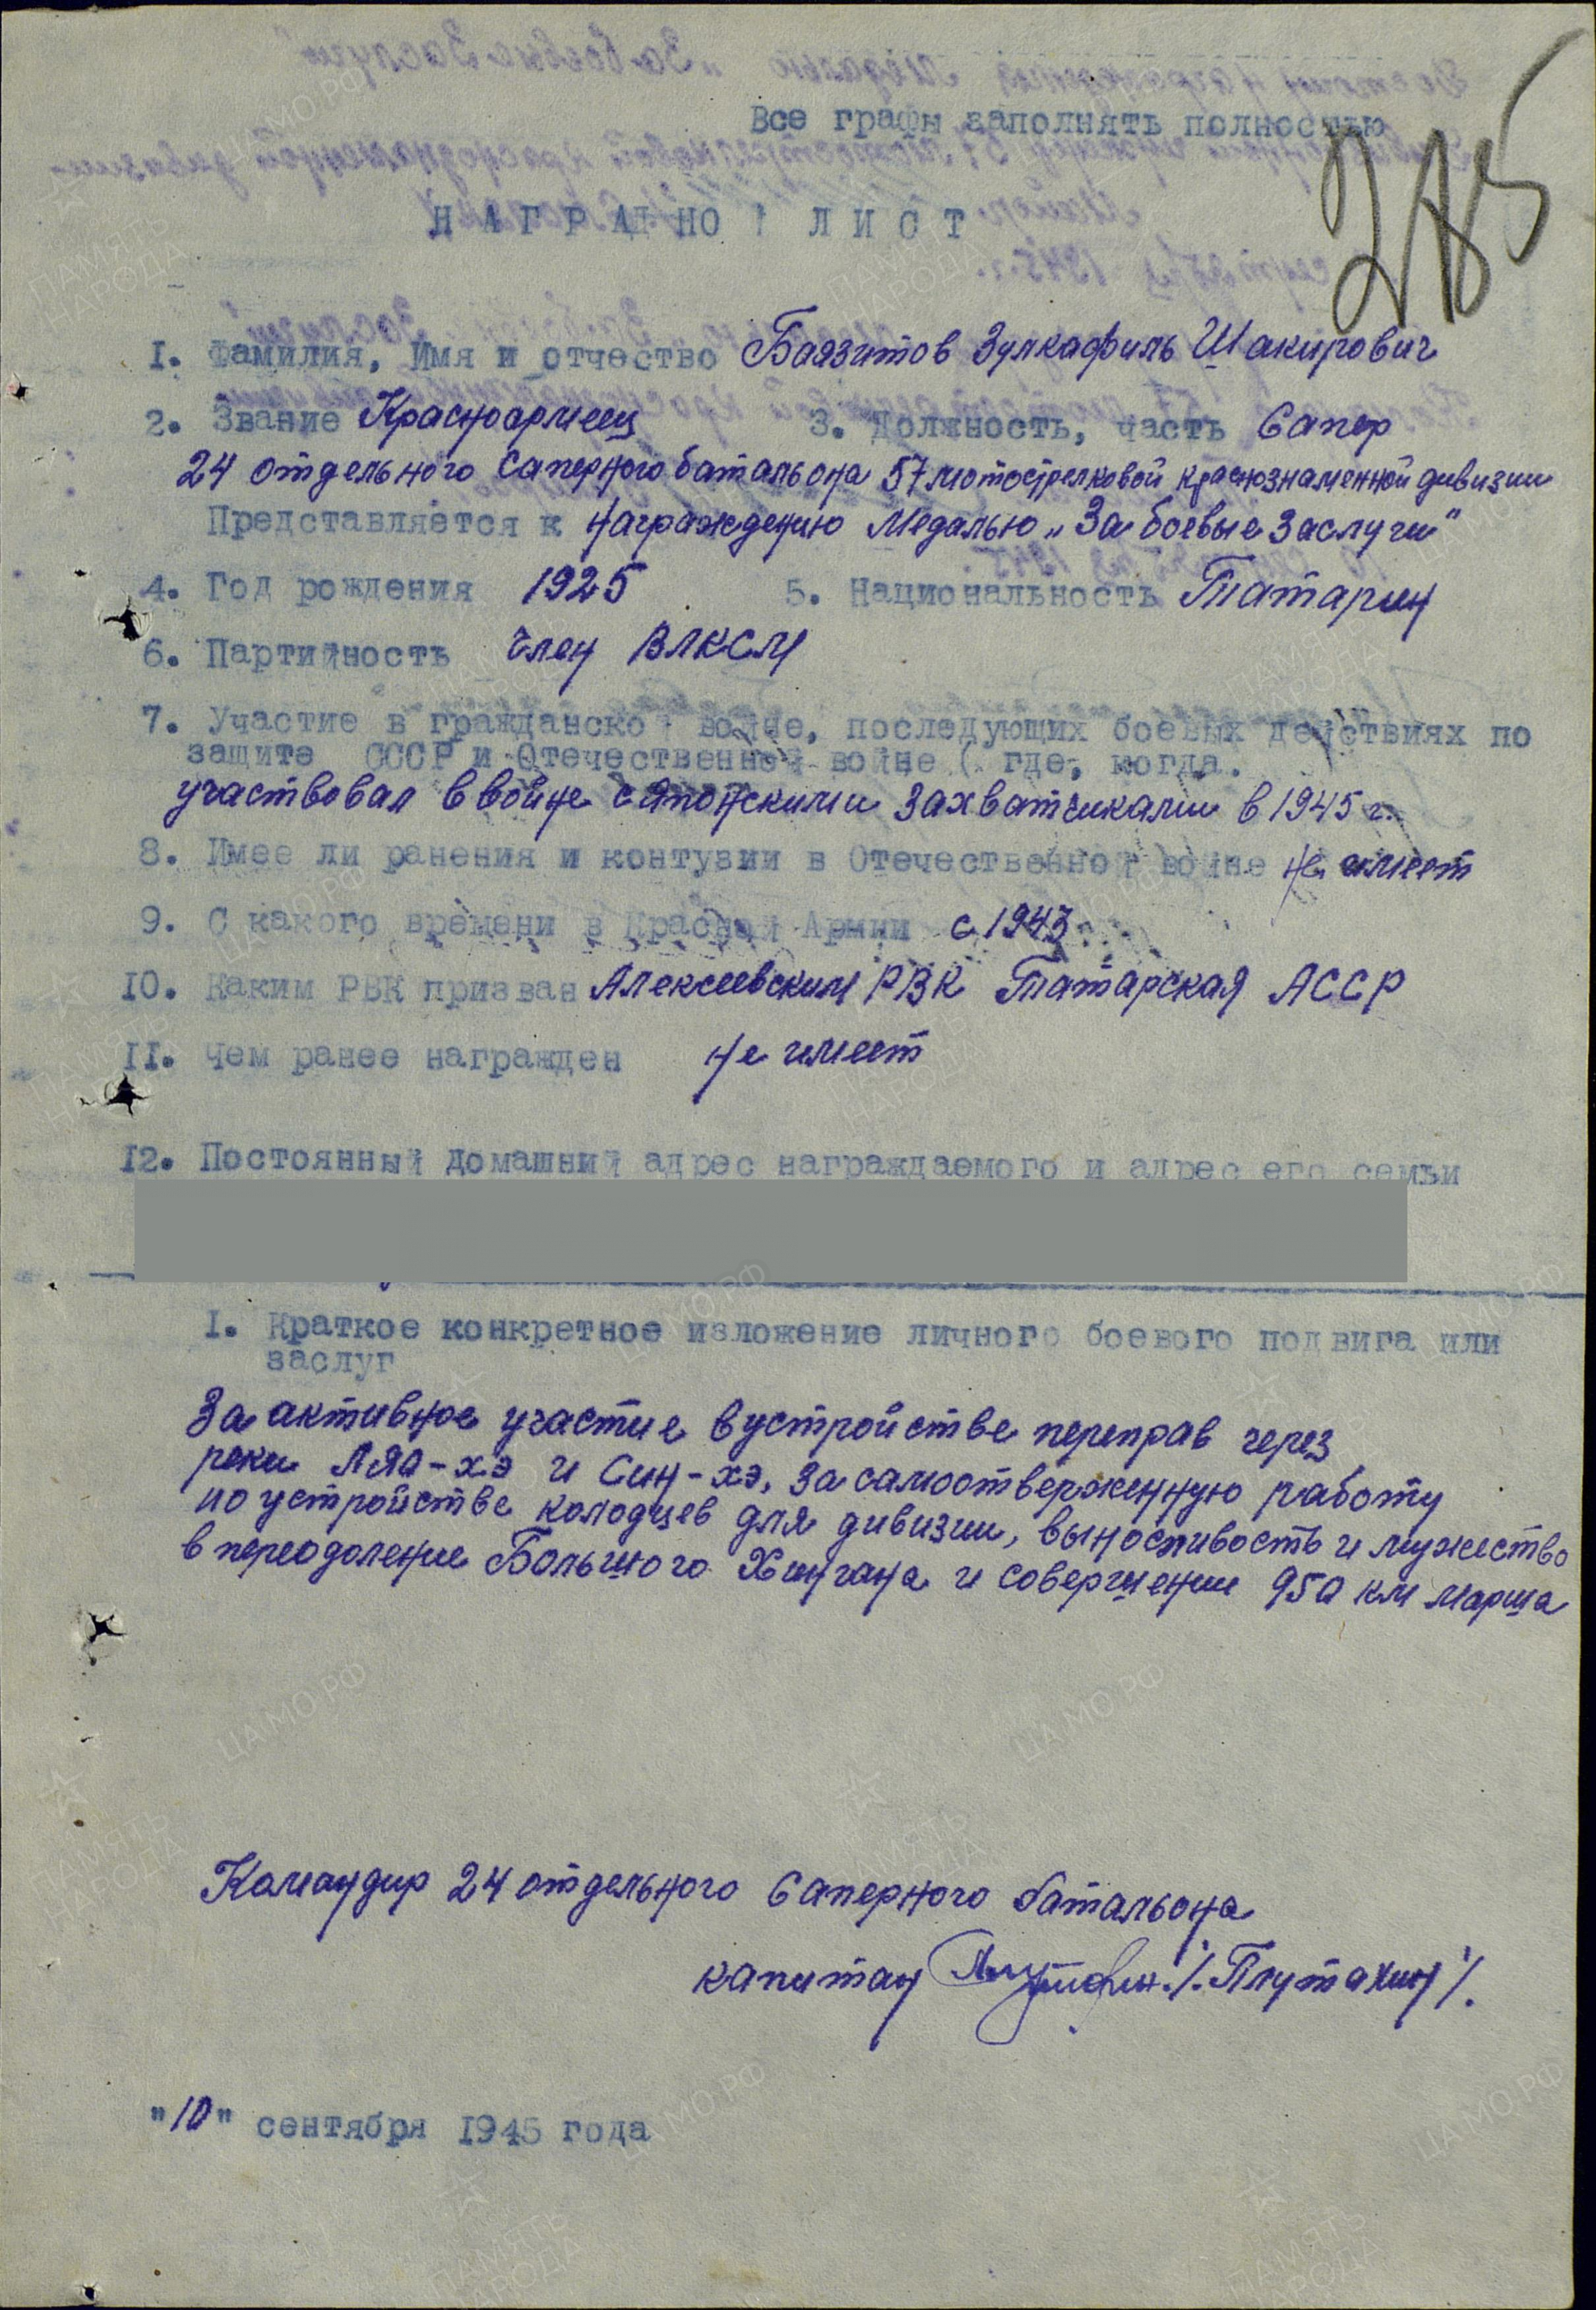 Все графы заполнять полностью
285
НАГРАДНОЙ ЛИСТ
1. Фамилия, Имя и отчество Баязитов Зулкафиль Шакирович
2. Звание Красноармеец 3. Должность, часть Сапер
24 отдельного саперного батальона 57 мотострелковой краснознаменной дивизии
Представляется к награждению Медалью „За боевые заслуги"
4. Год рождения 1925 5. Национальность Татарин
6. Партийность член ВЛКСМ
7. Участие в гражданской войне, последующих боевых действиях по
защите СССР и Отечественной войне ( где, когда.
участвовал в войне с японскими захватчиками в 1945 г.
8. Имее ли ранения и контузии в Отечественной войне не имеет
9. С какого времени в Красной Армии с 1943
10. Каким РВК призван Алексеевским РВК Татарская АССР
11. Чем ранее награжден не имеет
12. Постоянный домашний адрес награждаемого и адрес его семьи
I. Краткое конкретное изложение личного боевого подвига или
заслуг
За активное участие в устройстве переправ через
реки Ляо-хэ и Син-хэ, за самоотверженную работу
по устройстве колодцев для дивизии, выносливость и мужество
в переодоление Большого Хингана и совершении 950 км марша
Командир 24 отдельного Саперного батальона
капитан /Плутахин/.
"10" сентября 1945 года
ЦАМО.РФ
ПАМЯТЬ НАРОДА